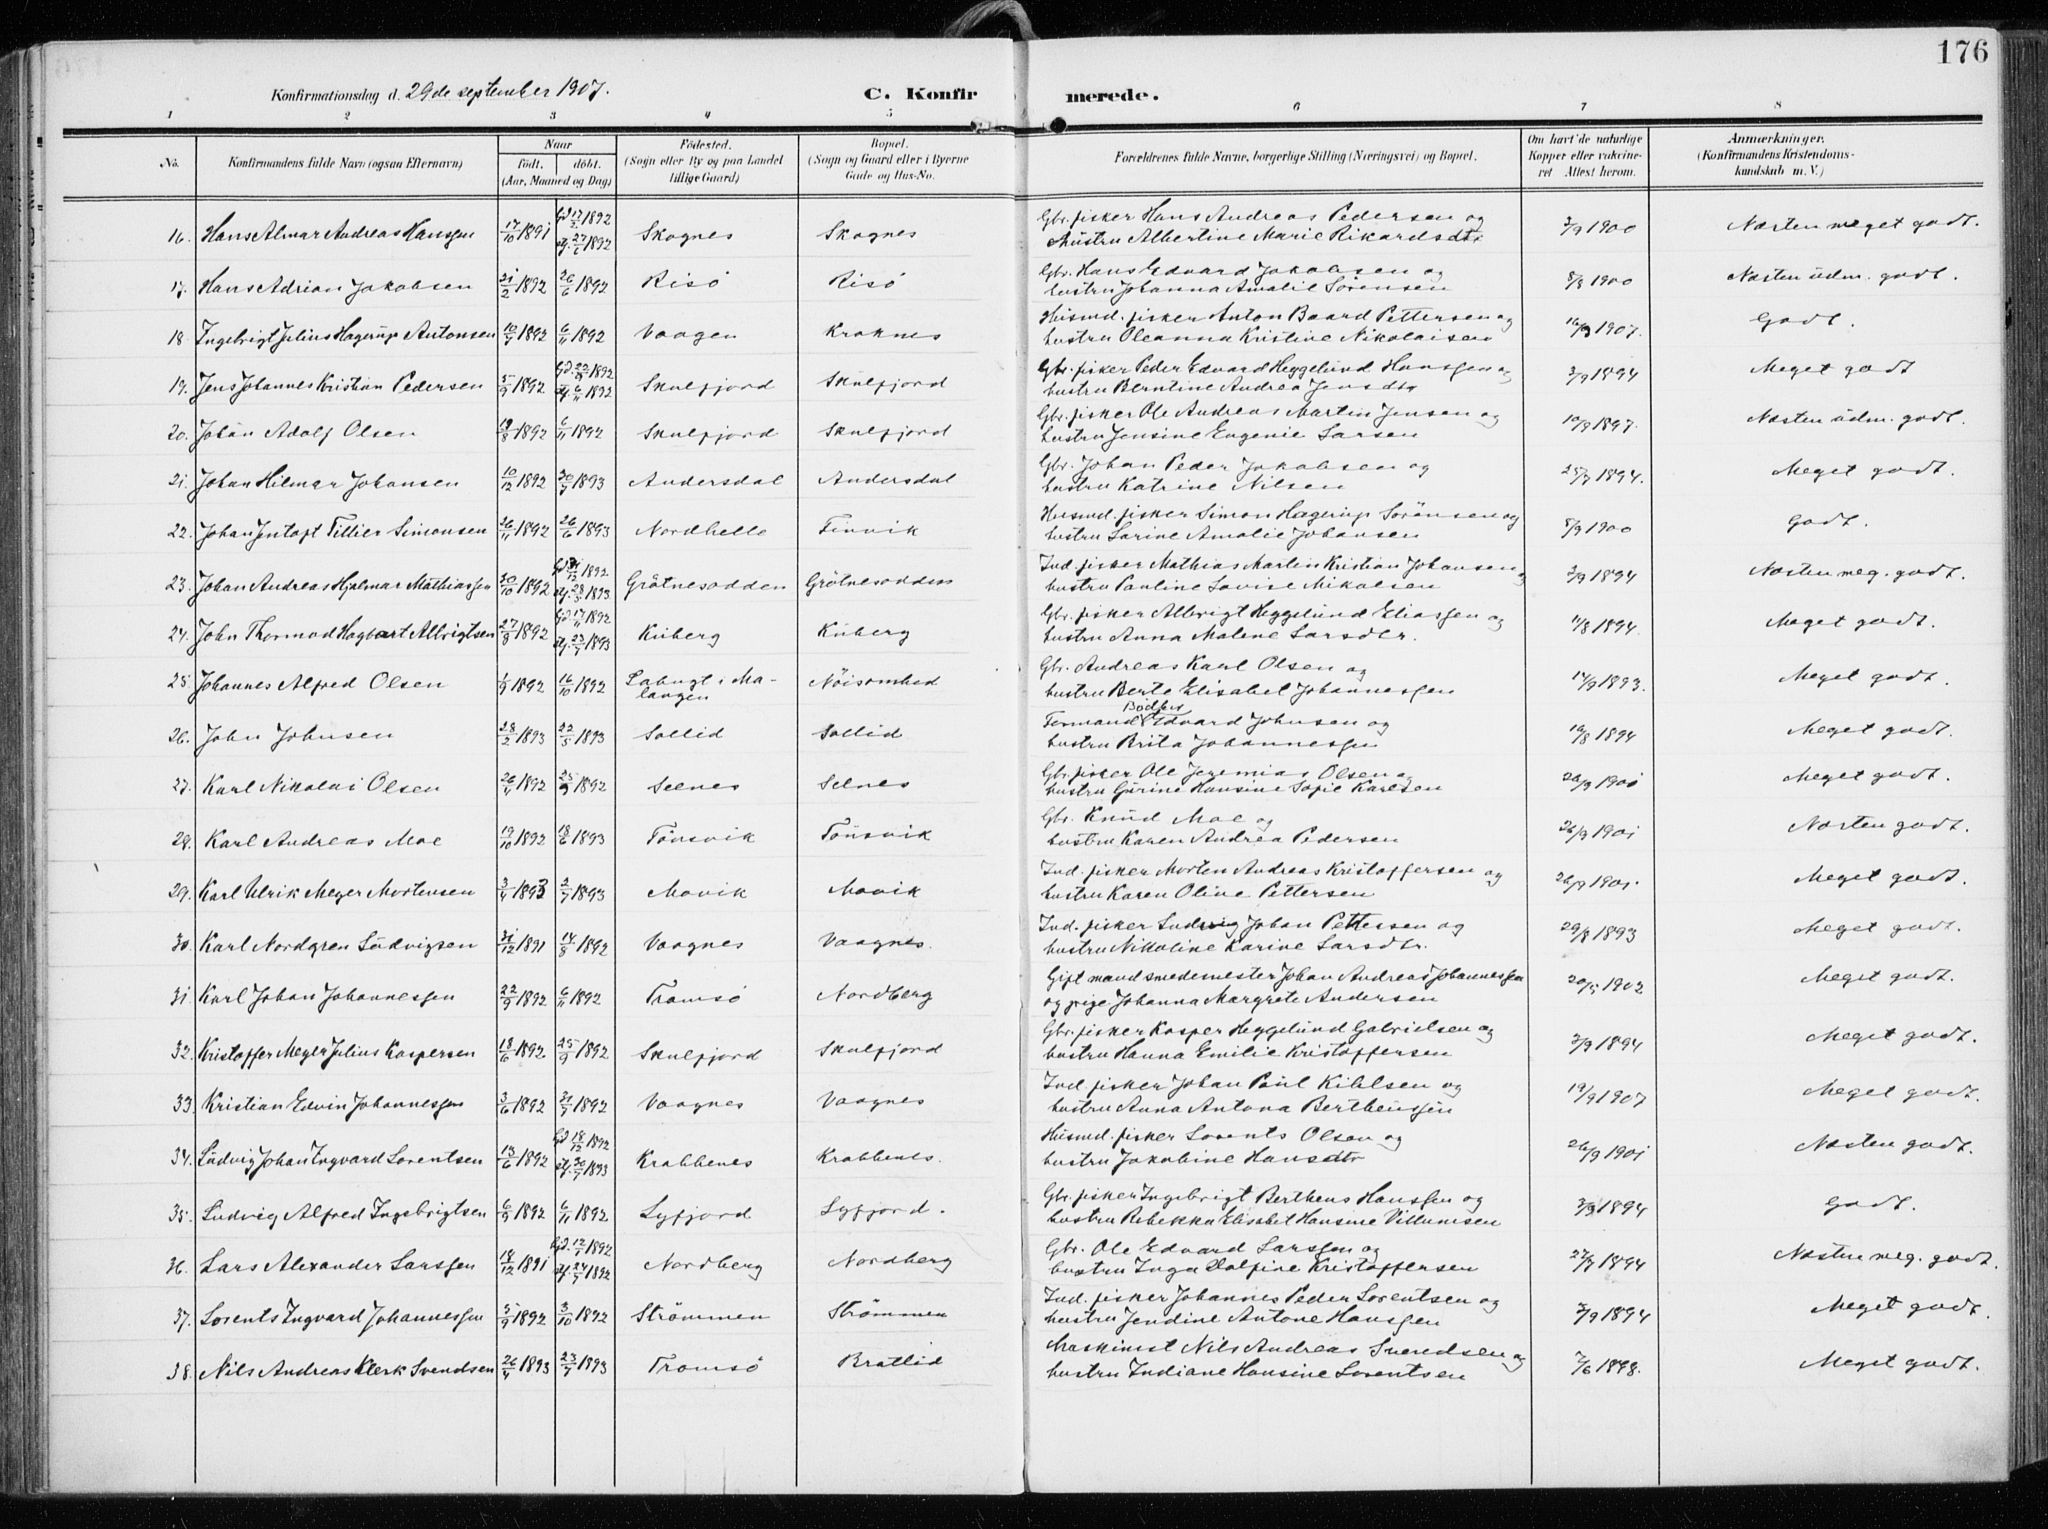 176
Konfirmationsdag d. 29de september 1907.
C. Konfirmerede.
1 2 3 4 5 6 7 8
No.
Konfirmandens fulde Navn (ogsaa Efternavn)
Naar
født.
døbt.
(Aar, Maaned og Dag)
Fødested.
(Sogn eller By og paa Landet
tillige Gaard)
Bopæl.
(Sogn og Gaard eller i Byerne
Gade og Hus-No.
Forældrenes fulde Navne, borgerlige Stilling (Næringsvei) og Bopæl.
Om havt de naturlige
Kopper eller vakcine-
ret Attest herom.
Anmærkninger.
(Konfirmandens Kristendoms-
kundskab m. V.)
16. Hans Almar Andreas Hanssen 17/10 1891 Gd. 17/3 1892 Skognes Skognes Gbr. fisker Hans Andreas Pedersen og 3/9 1900 Næsten meget godt.
st. 27/6 1892 Hustru Albertine Marie Rikardsdtr
17. Hans Adrian Jakobsen 21/2 1892 26/6 1892 Risö Risö Gbr. Hans Edvard Jakobsen og 8/9 1900 Næsten udm. godt.
hustru Johanna Amalie Sörensen
18. Ingebrigt Julius Hagerup Antonsen 10/9 1892 6/11 1892 Vaagen Kraknes Husmd. fisker Anton Baard Pettersen og 16/9 1907. Godt.
hustru Oleanna Kristine Nikolaisen
19. Jens Johannes Kristian Pedersen 5/9 1892 Gd. 1892 Skulfjord Skulfjord Gbr. fisker Peder Edvard Heggelund Hanssen og 3/9 1894 Meget godt
st. 6/11 1892 hustru Berntine Andrea Jensdtr
20. Johan Adolf Olsen 1892 6/11 1892 Skulfjord Skulfjord Gbr. fisker Ole Andreas Martin Jensen og 10/9 1897. Næsten udm. godt.
hustru Jensine Eugenie Larsen
21. Johan Hilmar Johansen 10/12 1892 30/7 1893 Andersdal Andersdal Gbr. Johan Peder Jakobsen og 1894. Meget godt.
hustru Katrine Nilsen
22. Johan Jentoft Tillier Simonsen 26/11 1892 26/6 1893 Nordhella Finvik Husmd. fisker Simon Hagerup Sörensen og 8/9 1900 Godt.
hustru Sarine Amalie Johansen
23. Johan Andreas Hjalmar Mathiassen 30/10 1892 Gd. 1892 Grötnesodden Grötnesodden Ind. fisker Mathias Martin Kristian Johansen og 3/9 1894 Næsten meg. godt.
st. 28/5 1893 hustru Pauline Lovise Nikolsen
24. John Thormod Hagbart Albrigtsen 27/8 1892 Gd. 17/11 1892 Kuberg Kuberg Gbr. fisker Albrigt Heggelund Eliassen og 11/8 1894. Meget godt.
st. 23/7 1893 hustru Anna Malene Larsdtr.
25. Johannes Alfred Olsen 1/9 1892 16/10 1892 Sabugt i Ma- Nöisomhed Gbr. Andreas Karl Olsen og 14/9 1893. Meget godt.
langen hustru Berte Elisabet Johannessen
26. John Johnsen 28/2 1893 22/5 1893 Sollid Sollid Formand Edvard Johnsen og 19/8 1894 Meget godt.
hustru Brita Johannessen
27. Karl Nikolai Olsen 26/4 1892 25/9 1892 Selnes Selnes Gbr. fisker Ole Jeremias Olsen og 26/9 1901 Meget godt.
hustru Gurine Hansine Sofie Karlsen
28. Karl Andreas Moe 19/10 1892 18/6 1893 Tönsvik Tönsvik Gbr. Knud Moe og 26/9 1901 Næsten godt.
hustru Karen Andrea Pedersen
29. Karl Ulrik Meyer Mortensen 3/4 1893 2/7 1893 Movik Movik Ind. fisker Morten Andreas Kristoffersen og 26/9 1901. Meget godt.
hustru Karen Oline Pettersen
30. Karl Nordgren Ludvigsen 31/12 1891 14/8 1892 Vaagnes Vaagnes. Ind. fisker Ludvig Johan Pettersen og 29/8 1893 Meget godt.
hustru Nikoline Karine Larsdtr.
31. Karl Johan Johannessen 22/9 1892 6/11 1892 Tromsö Nordberg Gift mand smedemester Johan Andreas Johannessen 20/5 1902 Meget godt.
og pige Johanna Margrete Andersen
32. Kristoffer Meyer Julius Kaspersen 18/6 1892 25/9 1892 Skulfjord Skulfjord Gbr. fisker Kasper Heggelund Gabrielsen og 3/9 1894 Meget godt.
hustru Hanna Emilie Kristoffersen
33. Kristian Edvin Johannessen 3/6 1892 31/7 1892 Vaagnes Vaagnes Ind. fisker Johan Paul Kihlsen og 19/9 1907 Meget godt.
hustru Anna Antona Berthensen
34. Ludvig Johan Ingvard Lorentsen 13/6 1892 Gd. 18/12 1892 Krabbenes Krabbenes. Husmd. fisker Lorents Olsen og 26/9 1901 Næsten godt.
st. 30/7 1893 hustru Jakobine Hansdtr
35. Ludvig Alfred Ingebrigtsen 6/9 1892 6/11 1892 Lyfjord Lyfjord. Gbr. fisker Ingebrigt Berthens Hanssen og 3/9 1894 godt.
hustru Rebekka Elisabet Hansine Villumsen
36. Lars Alexander Larssen 18/12 1891 Gd. 1892 Nordberg Nordberg Gbr. Ole Edvard Larssen og 1894 Næsten meg. godt.
st. 24/7 1892 hustru Inga Dalfine Kristoffersen
37. Lorents Ingvard Johannessen 5/9 1892 3/10 1892 Strömmen Strömmen Ind. fisker Johannes Peder Lorentsen og 3/9 1894 Meget godt.
hustru Jendine Antone Hanssen
38. Nils Andreas Klerk Svendsen 26/4 1893 23/7 1893 Tromsö Bratlid Maskinist Nils Andreas Svendsen og 7/6 1898. Meget godt.
hustru Indiane Hansine Lorentsen